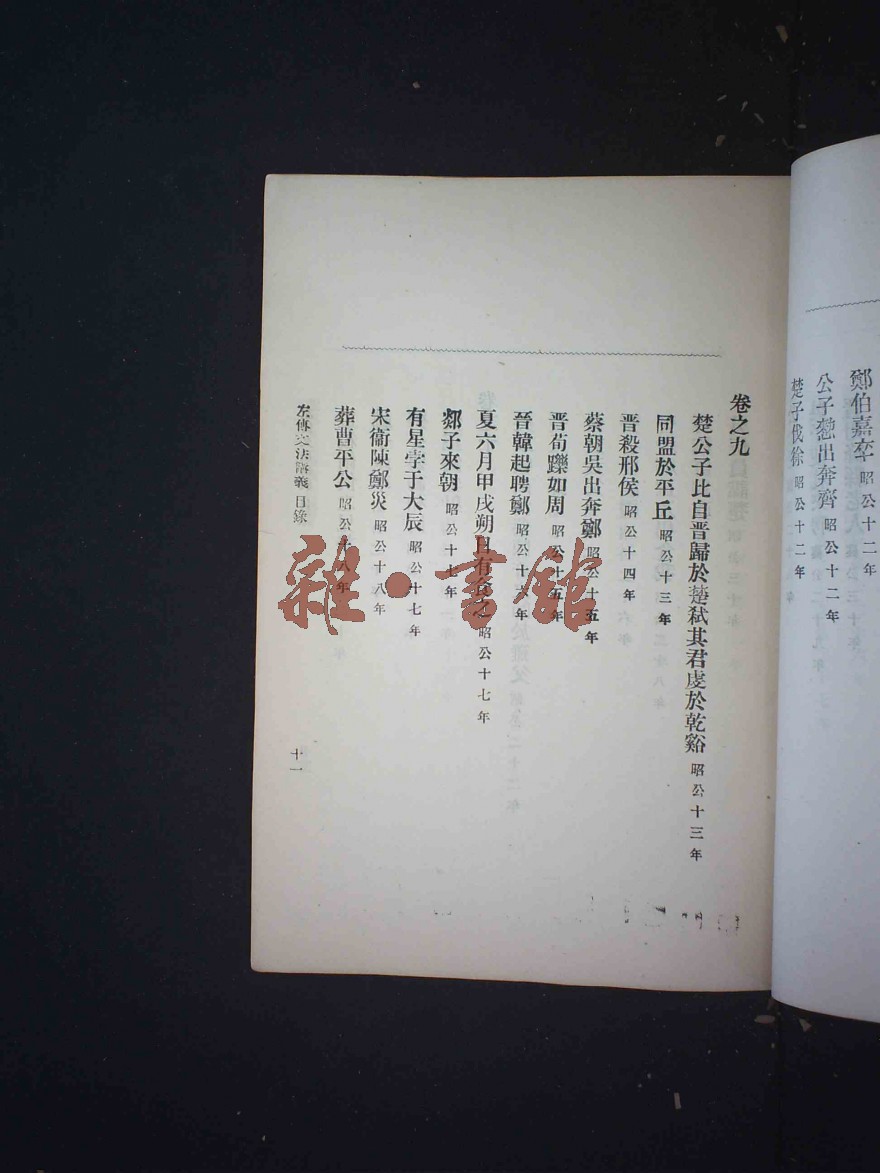 鄭伯嘉卒 昭公十二年
公子憖出奔齊 昭公十二年
楚子伐徐 昭公十二年
卷之九
楚公子比自晋歸於楚弒其君虔於乾谿 昭公十三年
同盟於平丘 昭公十三年
晋殺邢侯 昭公十四年
晋荀躒如周 昭公十五年
蔡朝吳出奔鄭 昭公十五年
晉韓起聘鄭 昭公十六年
夏六月甲戌朔日有食之 昭公十七年
郯子來朝 昭公十七年
有星孛于大辰 昭公十七年
宋衞陳鄭災 昭公十八年
葬曹平公 昭公十八年
左傳文法講義 目錄
十一
雜·書館